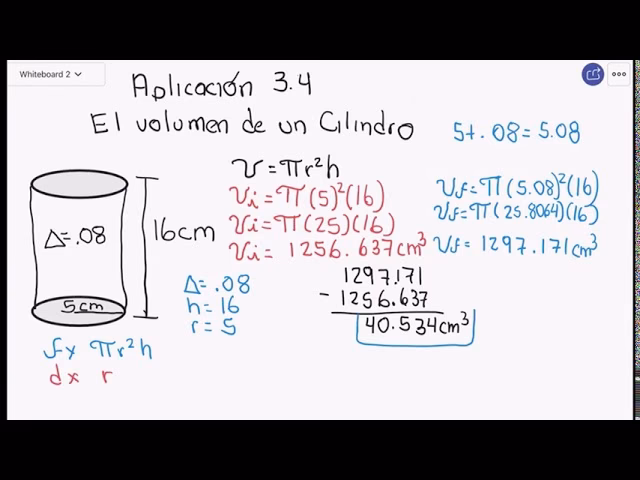 Whiteboard 2
Aplicación 3.4
El volumen de un Cilindro
5+.08=5.08
V=πr²h
Vi=π(5)²(16)
Vi=π(25)(16)
Vi= 1256.637cm³
Vf=π(5.08)²(16)
Vf=π(25.8064)(16)
Vf=1297.171cm³
Δ=.08
16cm
5cm
Δ=.08
h=16
r=5
1297.171
- 1256.637
40.534cm³
fx πr²h
dx r